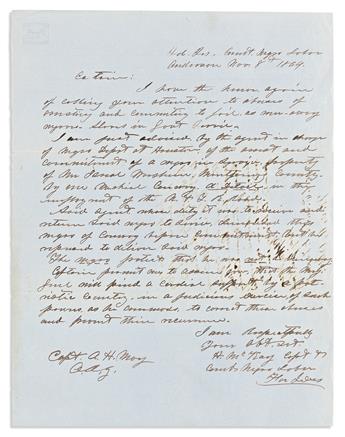 Negro Labor
Anderson Nov 8th 1864
Captain:
I have the honor again
of calling your attention to abuses of
arresting and committing to jail, as run-away
negroes, slaves in Govt Service.
I am just advised, by the agent in charge
of Negro Depot at Houston of the arrest and
commitment of a negro in Service, property
of Mr Montgomery County,
By one Michael a detail in the
employment of the R. Road.
Said agent, whose duty it was to receive and
return said negro to service, demanded the
negro of Conroy before commitment, but he
refused to deliver said negro.
The negro protests that he was not
Captain permit me to assure you that the Maj
Genl will find a cordial support, by a pat-
riotic County, in a judicious exercise of such
powers, as he commands, to correct these abuses
and prevent their recurrence.
I am Respectfully
Your Obt Svt
H. McKay Capt &
Negro Labor
Capt. A. H. May
A. A. G.